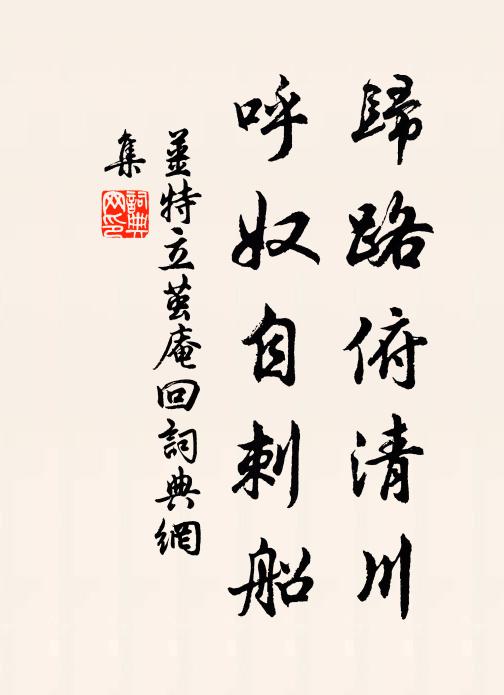 歸路俯清川
呼奴自刺船
薑特立茧庵回詞典網
集
詞典网印